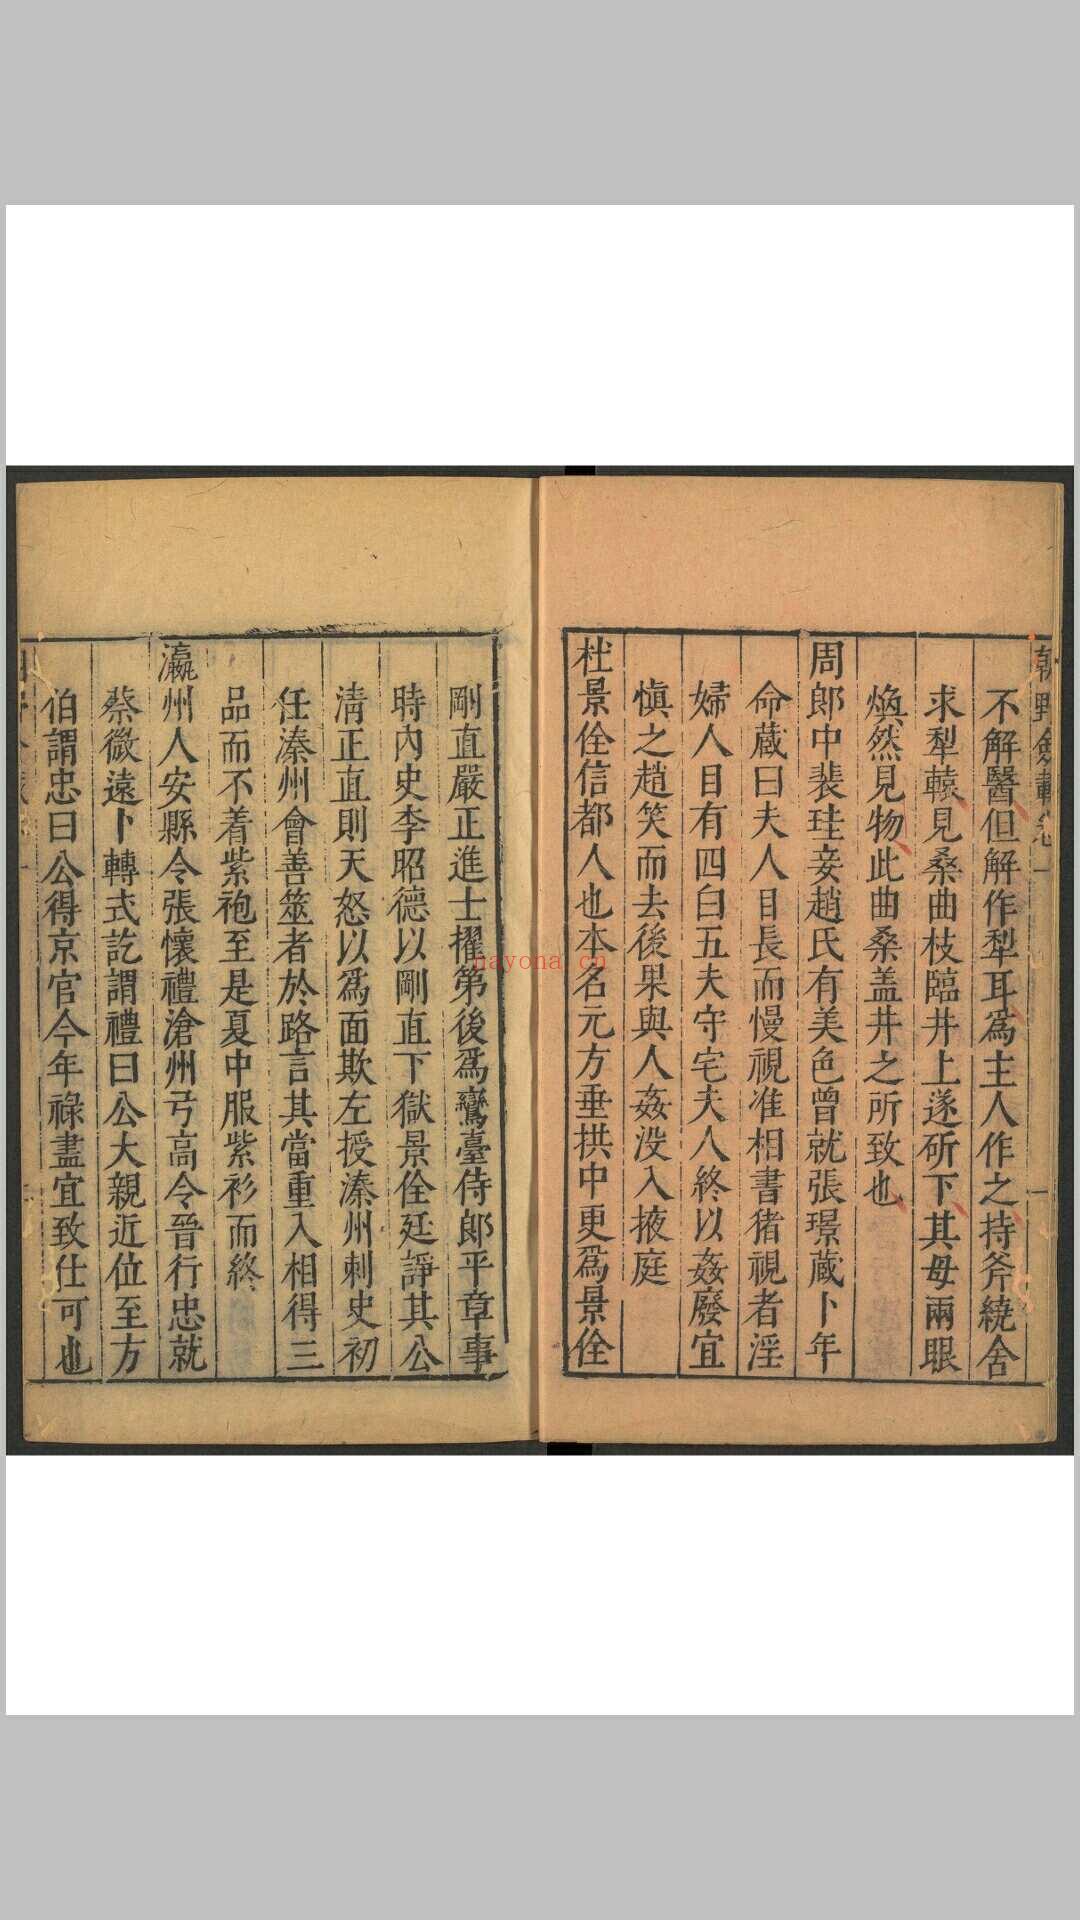 朝野僉載卷一
不解醫但解作犁耳爲主人作之持斧繞舍
求犁轅見桑曲枝臨井上遂斫下其母兩眼
煥然見物此曲桑盖井之所致也
周郎中裴珪妾趙氏有美色曾就張璟藏卜年
命藏曰夫人目長而慢視准相書猪視者淫
婦人目有四白五夫守宅夫人終以姦廢宜
愼之趙笑而去後果與人姦没入掖庭
杜景佺信都人也本名元方垂拱中更爲景佺
剛直嚴正進士擢第後爲鸞臺侍郎平章事
時內史李昭德以剛直下獄景佺廷諍其公
清正直則天怒以爲面欺左授溱州刺史初
任溱州會善筮者於路言其當重入相得三
品而不着紫袍至是夏中服紫衫而終
瀛州人安縣令張懷禮滄州弓高令晉行忠就
蔡微遠卜轉式訖謂禮曰公大親近位至方
伯謂忠曰公得京官今年祿盡宜致仕可也
nayona.cn